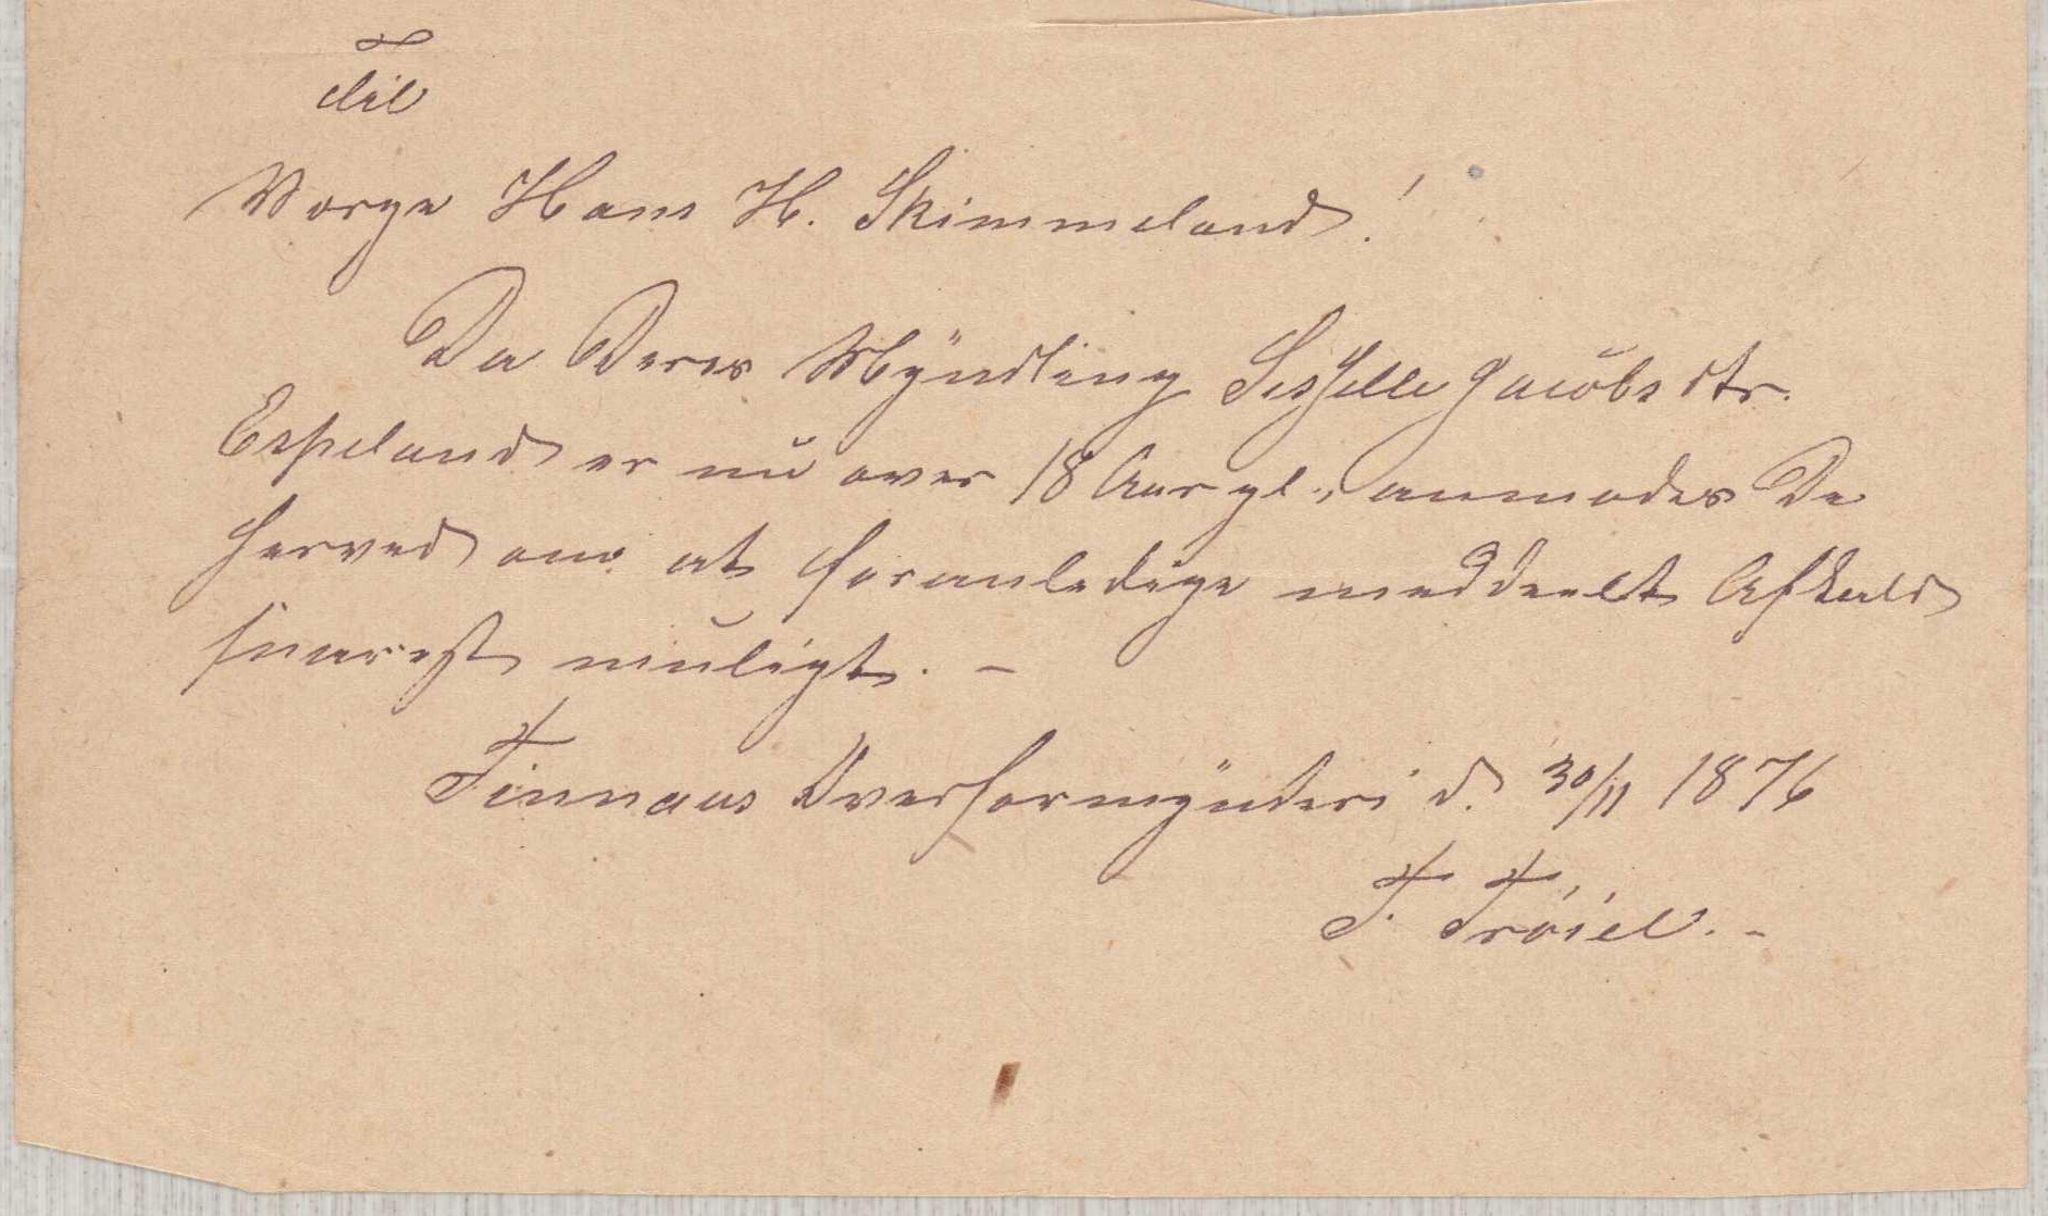 Til
Værge Hans H. Skimmeland!
Da Deres Myndling Sisselle Jacobsdtr.
Espeland er nu over 18 Aar gl., anmodes De
herved om at foranledige meddeelt Afkald
snarest muligt. —
Finnaas Overformynderi d. 30/11 1876
T. Trøiel. -